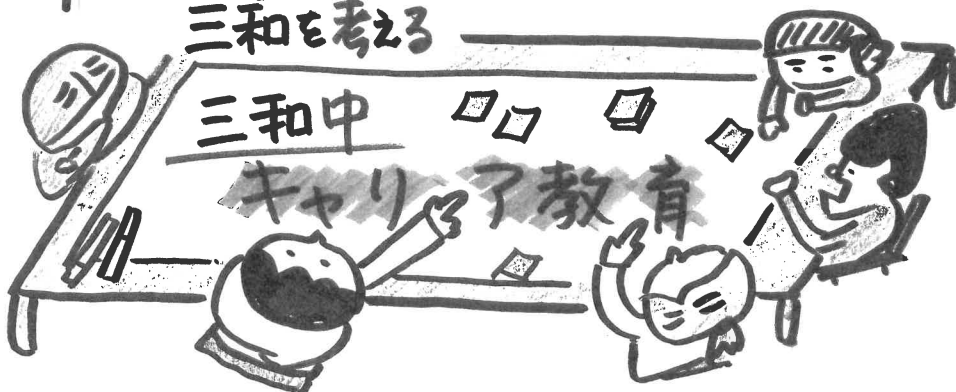 三和を考える
三和中
キャリア教育